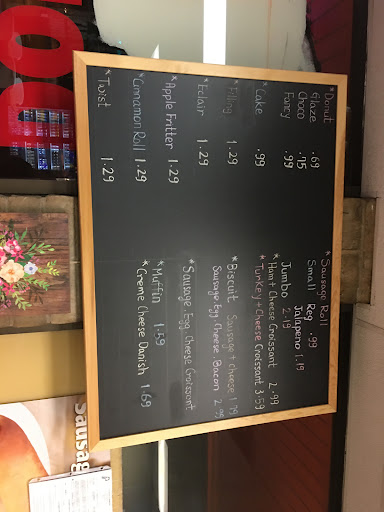 * Donut
Glaze .69
Choco .75
Fancy .99
* Cake .99
* Filling 1.29
* Eclair 1.29
* Apple Fritter 1.29
* Cinnamon Roll 1.29
* Twist 1.29
* Sausage Roll
Small Reg .99
Jalapeno 1.19
Jumbo 2.19
* Ham + Cheese Croissant 2.99
* Turkey + Cheese Croissant 3.59
* Biscuit Sausage + cheese 1.79
Sausage.Egg.Cheese.Bacon 2.99
* Sausage.Egg.Cheese Croissant
* Muffin 1.59
* Creme Cheese Danish 1.69
DO
Sausag